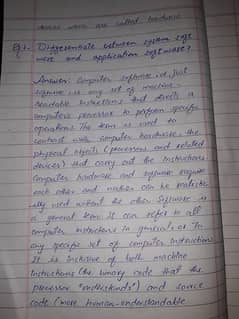 devices which are called hardware
Q1. Differentiate between system soft
ware and application software?
Answer: Computer software is Just
software is any set of machine
readable instructions that directs a
computer's processor to perform specific
operations. The term is used to
contrast with computer hardware, the
physical objects (processors and related
devices) that carry out the instructions
computer hardware and software require
each other and neither can be realistic
ally used without the other. Software is
a general term. It can refer to all
computer instructions in general or to
any specific set of computer instructions.
It is inclusive of both machine
instructions (the binary code that the
processor "understands") and source
code (more human-understandable